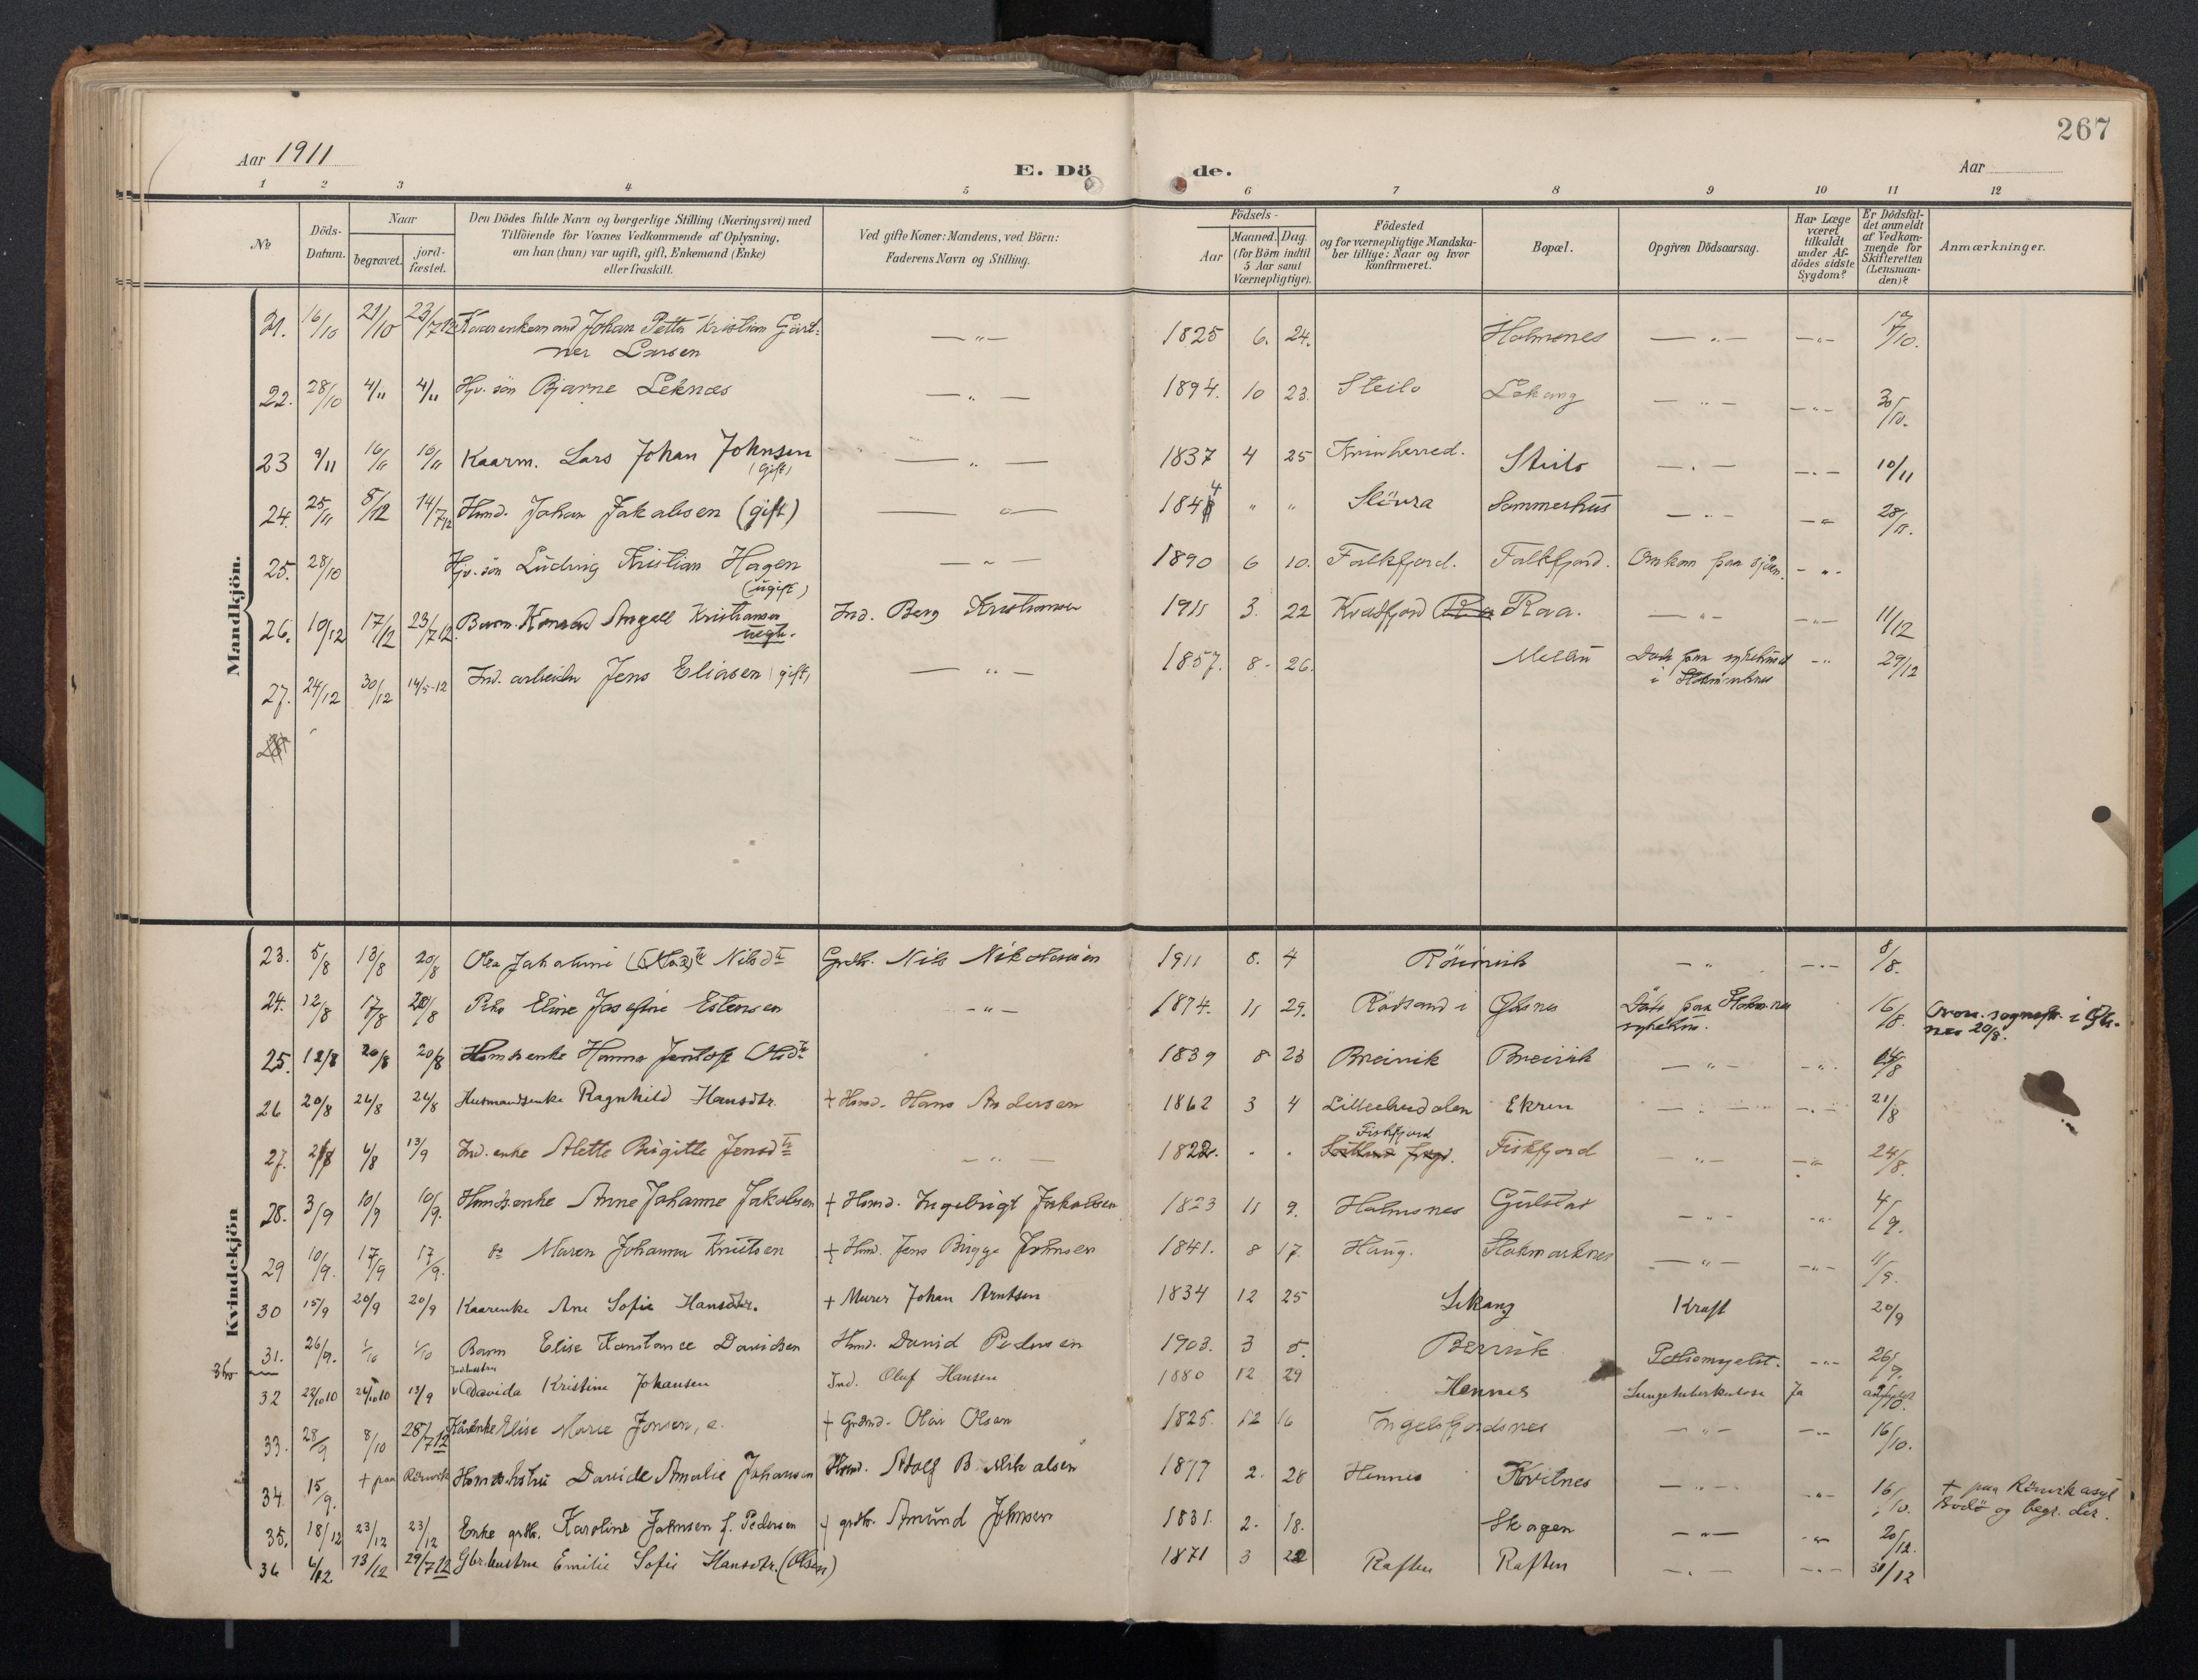 267
Aar 1911
E. Dö de.
Aar
1 2 3 4 5 6 7 8 9 10 11 12
No
Döds-
Datum.
Naar
begravet.
jord-
fæstet.
Den Dödes fulde Navn og borgerlige Stilling (Næringsvei) med
Tilföiende for Voxnes Vedkommende af Oplysning,
om han (hun) var ugift, gift, Enkemand (Enke)
eller fraskilt.
Ved gifte Koner: Mandens, ved Börn:
Faderens Navn og Stilling.
Födsels-
Aar
Maaned. Dag.
(for Börn indtil
5 Aar samt
Værnepligtige).
Födested
og for værnepligtige Mandska-
ber tillige: Naar og hvor
Konfirmeret.
Bopæl.
Opgiven Dödsaarsag.
Har Læge
været
tilkaldt
under Af-
dödes sidste
Sygdom?
Er Dödsfal-
det anmeldt
af Vedkom-
mende for
Skifteretten
(Lensman-
den)?
Anmærkninger.
Mandkjön.
21. 16/10 21/10 23/7 12 Kaarenkemand Johan Petter Kristian Gært- — " — 1825 6. 24. Holmsnes — " — — " — /10.
ner Larsen
22. 28/10 4/11 4/11 Hjv. sön Bjarne Leknæs — " — 1894. 10 23. Steilo Lekang — " — — " — 30/10.
23 9/11 16/11 16/11 Kaarm. Lars Johan Johnsen — " — 1837 4 25 Kvinherred. Steilo — " — — " — 10/11
(Gift)
24. 25/11 8/12 14/7 12 Hmd. Johan Jakobsen (gift) — " — 1844 " " Slövra Sommerhus — " — — " — 28/11.
25. 28/10 Hjv. sön Ludvig Kristian Hagen — " — 1890 6 10. Falkfjord. Falkfjord. Omkom paa sjöen. — " —
(ugift)
26. 10/12 17/12 23/7 12. Barn. Konrad Angell Kristiansen Ind. Berg Kristiansen 1911 3. 22 Kvædfjord Roa. — " — — " — 11/12
uegte.
27. 24/12 30/12 14/5-12 Ind. arbeider Jens Eliasen (gift) — " — 1857. 8- 26. Melbu Döde paa sykehuset — " 29/12
i Stokmarknes
28
Kvindekjön
23. 5/8 13/8 20/8 Olea Jakobine Nilsdtr Grdbr. Nils Nikolaisen 1911 8. 4 Rörvik — " — — " — 8/8.
24. 12/8 17/8 20/8 Pike Eline Josefine Estensen — " — 1874. 11 29. Rödsand i Öksnes Döde paa Stokm.nes 16/8. Oven. sognepr. i Øks-
sykehus. nes 20/8.
25. 12/8 20/8 20/8 Hmdsenke Hanna Jentoft Olsdtr 1839 8 23 Breivik Breivik — " — — " — 14/8
26 20/8 26/8 26/8 Husmandsenke Ragnhild Hansdtr. + Hmd. Hans Andersen 1862 3 4 Lilleelvedalen Ekren — " — — " — 21/8
27. 6/8 13/9 Ind. enke Alette Birgitte Jensdtr — " — 1822. " " Fiskfjord Fiskfjord — " — — " — 24/8.
28. 3/9 10/9 10/9. Hmdsenke Anne Johanne Jakobsen + Hmd. Ingebrigt Jakobsen 1823 11 9. Holmsnes Gulstad — " — — " — 4/9.
29 10/9. 17/9 17/9. do Maren Johanna Knutsen + Hmd. Jens Brygge Johnsen 1841. 8 17. Haug. Stokmarknes — " — — " — 11/9.
30 15/9 20/9 20/9 Kaarenke Ane Sofie Hansdtr. + Murer Johan Arntsen 1834 12 25 Lekang Kræft 20/9
31. 26/9. 1/10 1/10 Barn Elise Konstance Davidsen Hmd. David Pedersen 1903. 3 5. Bervik Poliomyelit. — " — 26/9.
32 22/10 10 26/10 10 13/9 Ind.hustru Davida Kristine Johansen Ind. Oluf Hansen 1880 12 29 Hennes Lungetuberkulose Ja
33. 28/9 8/10 28/7 12 Kårenke Elise Marie Jonsen, e. + Grdmd. Olai Olsen 1825. 12 16 Ingelsfjordsnes — " — — " — 16/10.
34. 15/9. + paa Rönvik Hmdshustru Davide Amalie Johansen Hmd. Adolf B. Mikalsen 1877 2. 28 Hennes Kvitnes — " — — " — 16/10. + paa Rönvik asyl
Bodö og begr. der.
35. 18/12 23/12 23/12 Enke grdbr. Karoline Johnsen f. Pedersen + grdbr. Amund Johnsen 1831. 2. 18. Skagen — " — — " — 20/12.
36 6/12 13/12 29/7 12 Gbr.hustru Emilie Sofie Hansdtr. (Olsen) 1871 3 22 Raften Raften — " — — " — 31/12